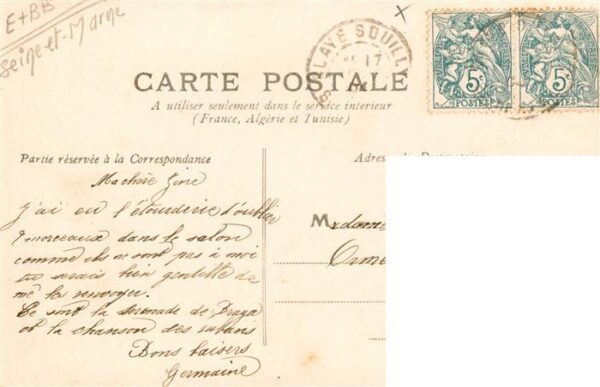 E+BB
Seine-et-Marne
CLAYE SOUILLY
17
5c
POSTES
5c
POSTES
CARTE POSTALE
A utiliser seulement dans le service interieur
(France, Algérie et Tunisie)
Partie réservée à la Correspondance
Ma chère
J'ai eu l'étourderie d'oublier
morceaux dans le salon
comme ils ne sont pas à moi
tu serais bien gentille de
me les renvoyer.
Ce sont la serenade de Braga
et la chanson des rubans
Bons baisers
Germaine
Madame
Orme